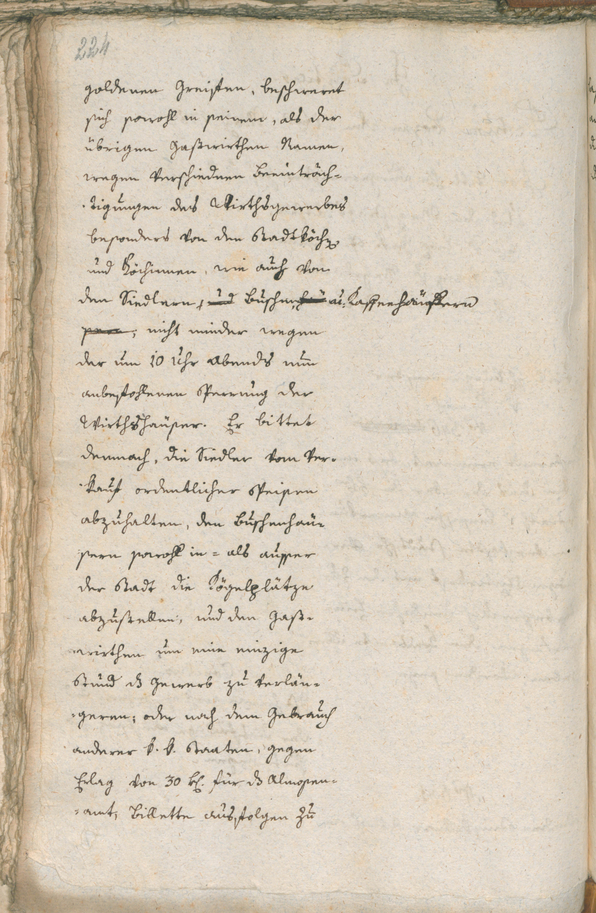 224
goldenen Greifen, beschweret
sich sowohl in seinem, als der
übrigen Gastwirthen Namen,
wegen verschiednen Beeinträch-
-tigungen des Wirthsgewerbes
besonders von den Stadtköchen
und Köchinnen, wie auch von
den Siedlern, und Buschen u. Kaffeehäusern
nicht minder wegen
der um 10 Uhr Abends nun
anbefohlenen Sperrung der
Wirthshäuser. Er bittet
demnach, die Siedler vom Ver-
-kauf ordentlicher Speisen
abzuhalten, den Buschenhäu-
sern sowohl in- als ausser
der Stadt die Kögelplätze
abzustellen, und den Gast-
-wirthen um eine einzige
Stund ds Gewerb zu verlän-
-geren; oder nach dem Gebrauch
anderer k. k. Staaten, gegen
Erlag von 30 kr. für ds Almosen-
-amt, Billette ausfolgen zu